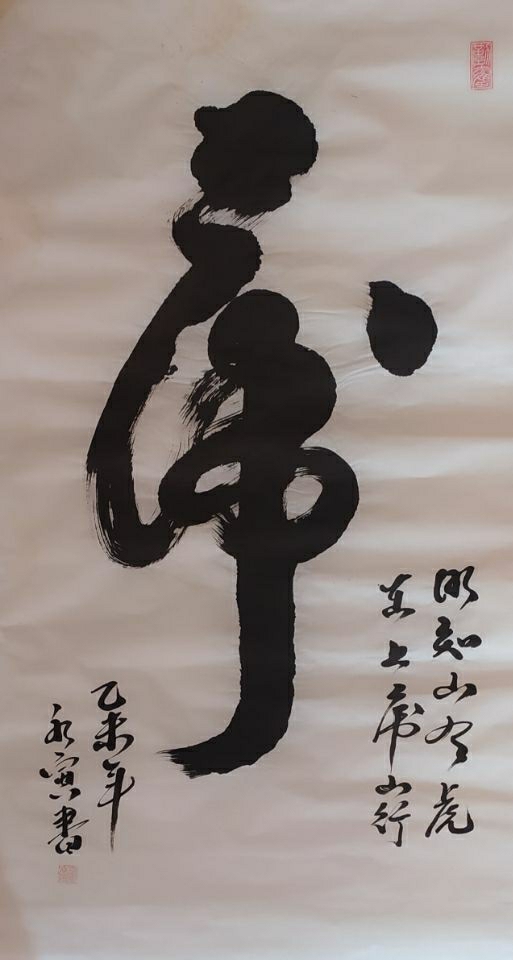 虎
明知山有虎
上虎山行
乙未年
永寅書